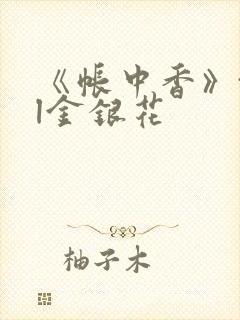 《帐中香》
|金银花
柚子木